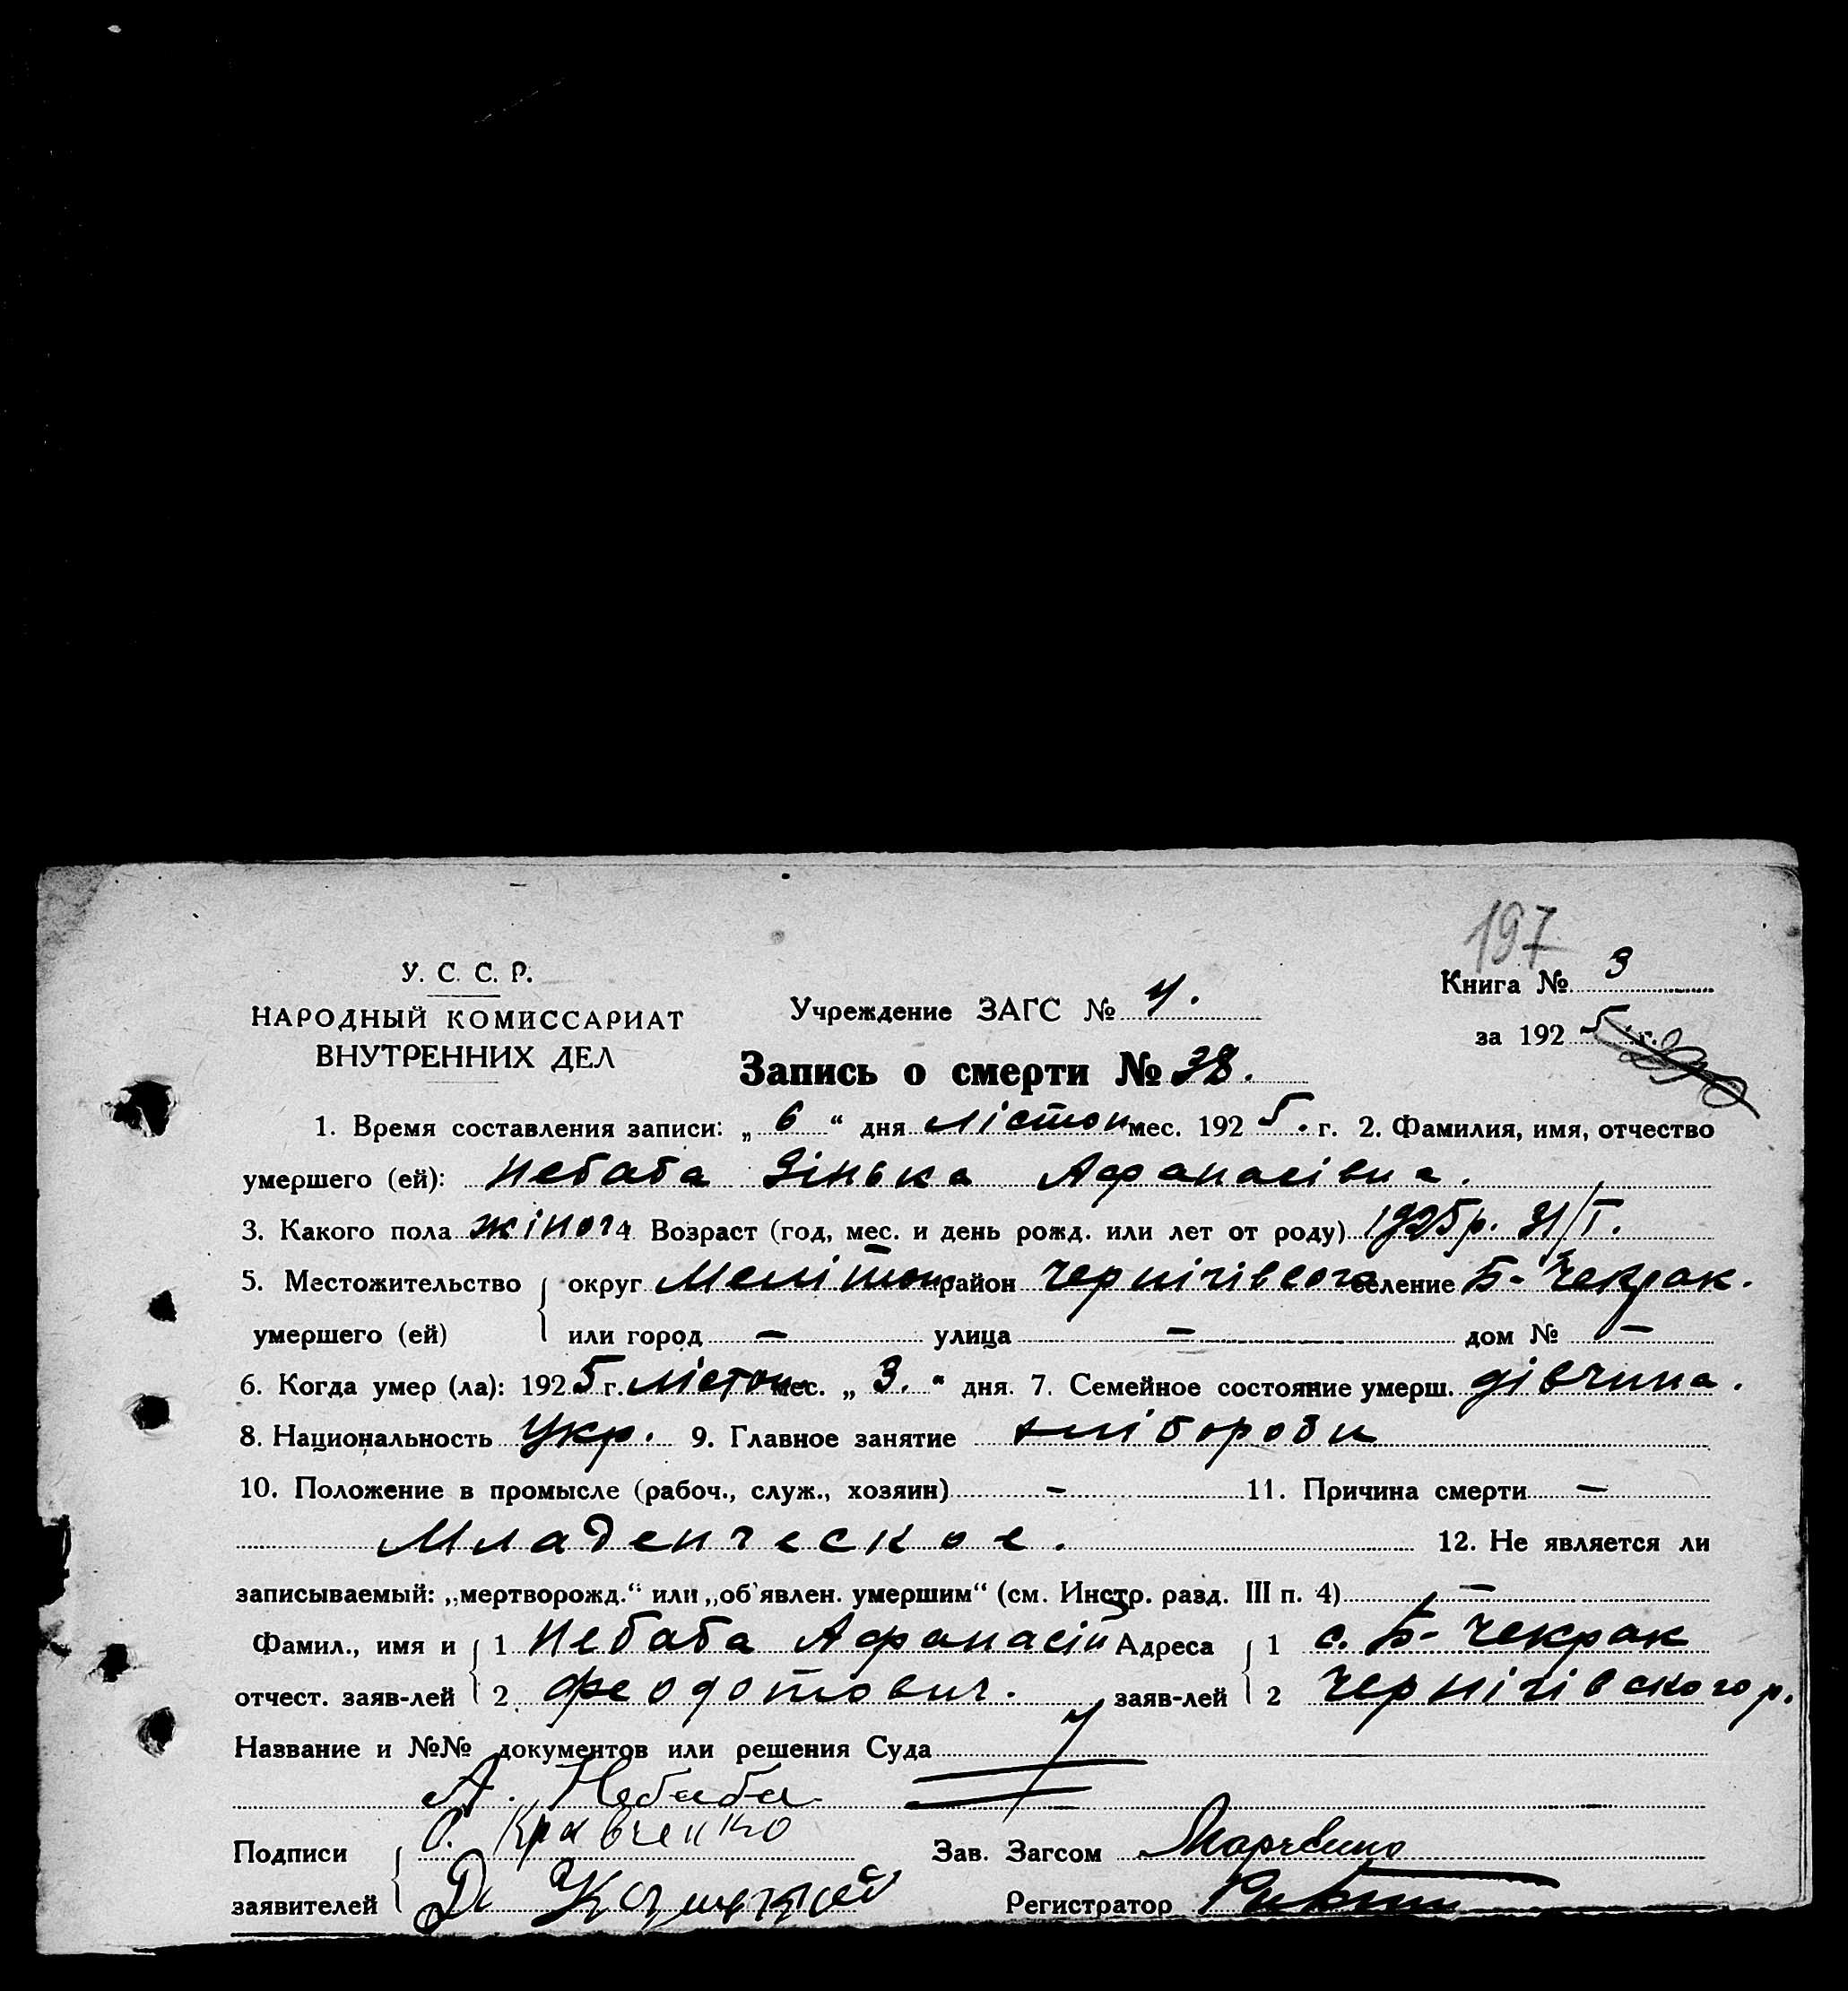 197
У. С. С. Р.
НАРОДНЫЙ КОМИССАРИАТ
ВНУТРЕННИХ ДЕЛ
Учреждение ЗАГС № 4.
Книга № 3
за 192 5 г.
Запись о смерти № 38.
1. Время составления записи: „ 6 “ дня лістоп мес. 192 5. г. 2. Фамилия, имя, отчество
умершего (ей): Небаба Зінька Афанасівна.
3. Какого пола жіноч 4. Возраст (год, мес. и день рожд. или лет от роду) 1925 р.
5. Местожительство округ Мелітоп район Чернігівсог селение Б-Чекрак.
умершего (ей) или город — улица — дом № —
6. Когда умер (ла): 192 5 г. лістоп. мес. „ 3. “ дня. 7. Семейное состояние умерш. дівчина.
8. Национальность Укр. 9. Главное занятие хлібороби
10. Положение в промысле (рабоч., служ., хозяин) - 11. Причина смерти —
Младенческое. 12. Не является ли
записываемый: „мертворожд.“ или „об'явлен. умершим“ (см. Инстр. разд. III п. 4) —
Фамил., имя и 1 Небаба Афанасій Адреса 1 с. Б-Чекрак
отчест. заяв-лей 2 Феодотович. заяв-лей 2 Чернігівского р.
Название и №№ документов или решения Суда
А. Небаба
Подписи Кравченко Зав. Загсом
заявителей Регистратор